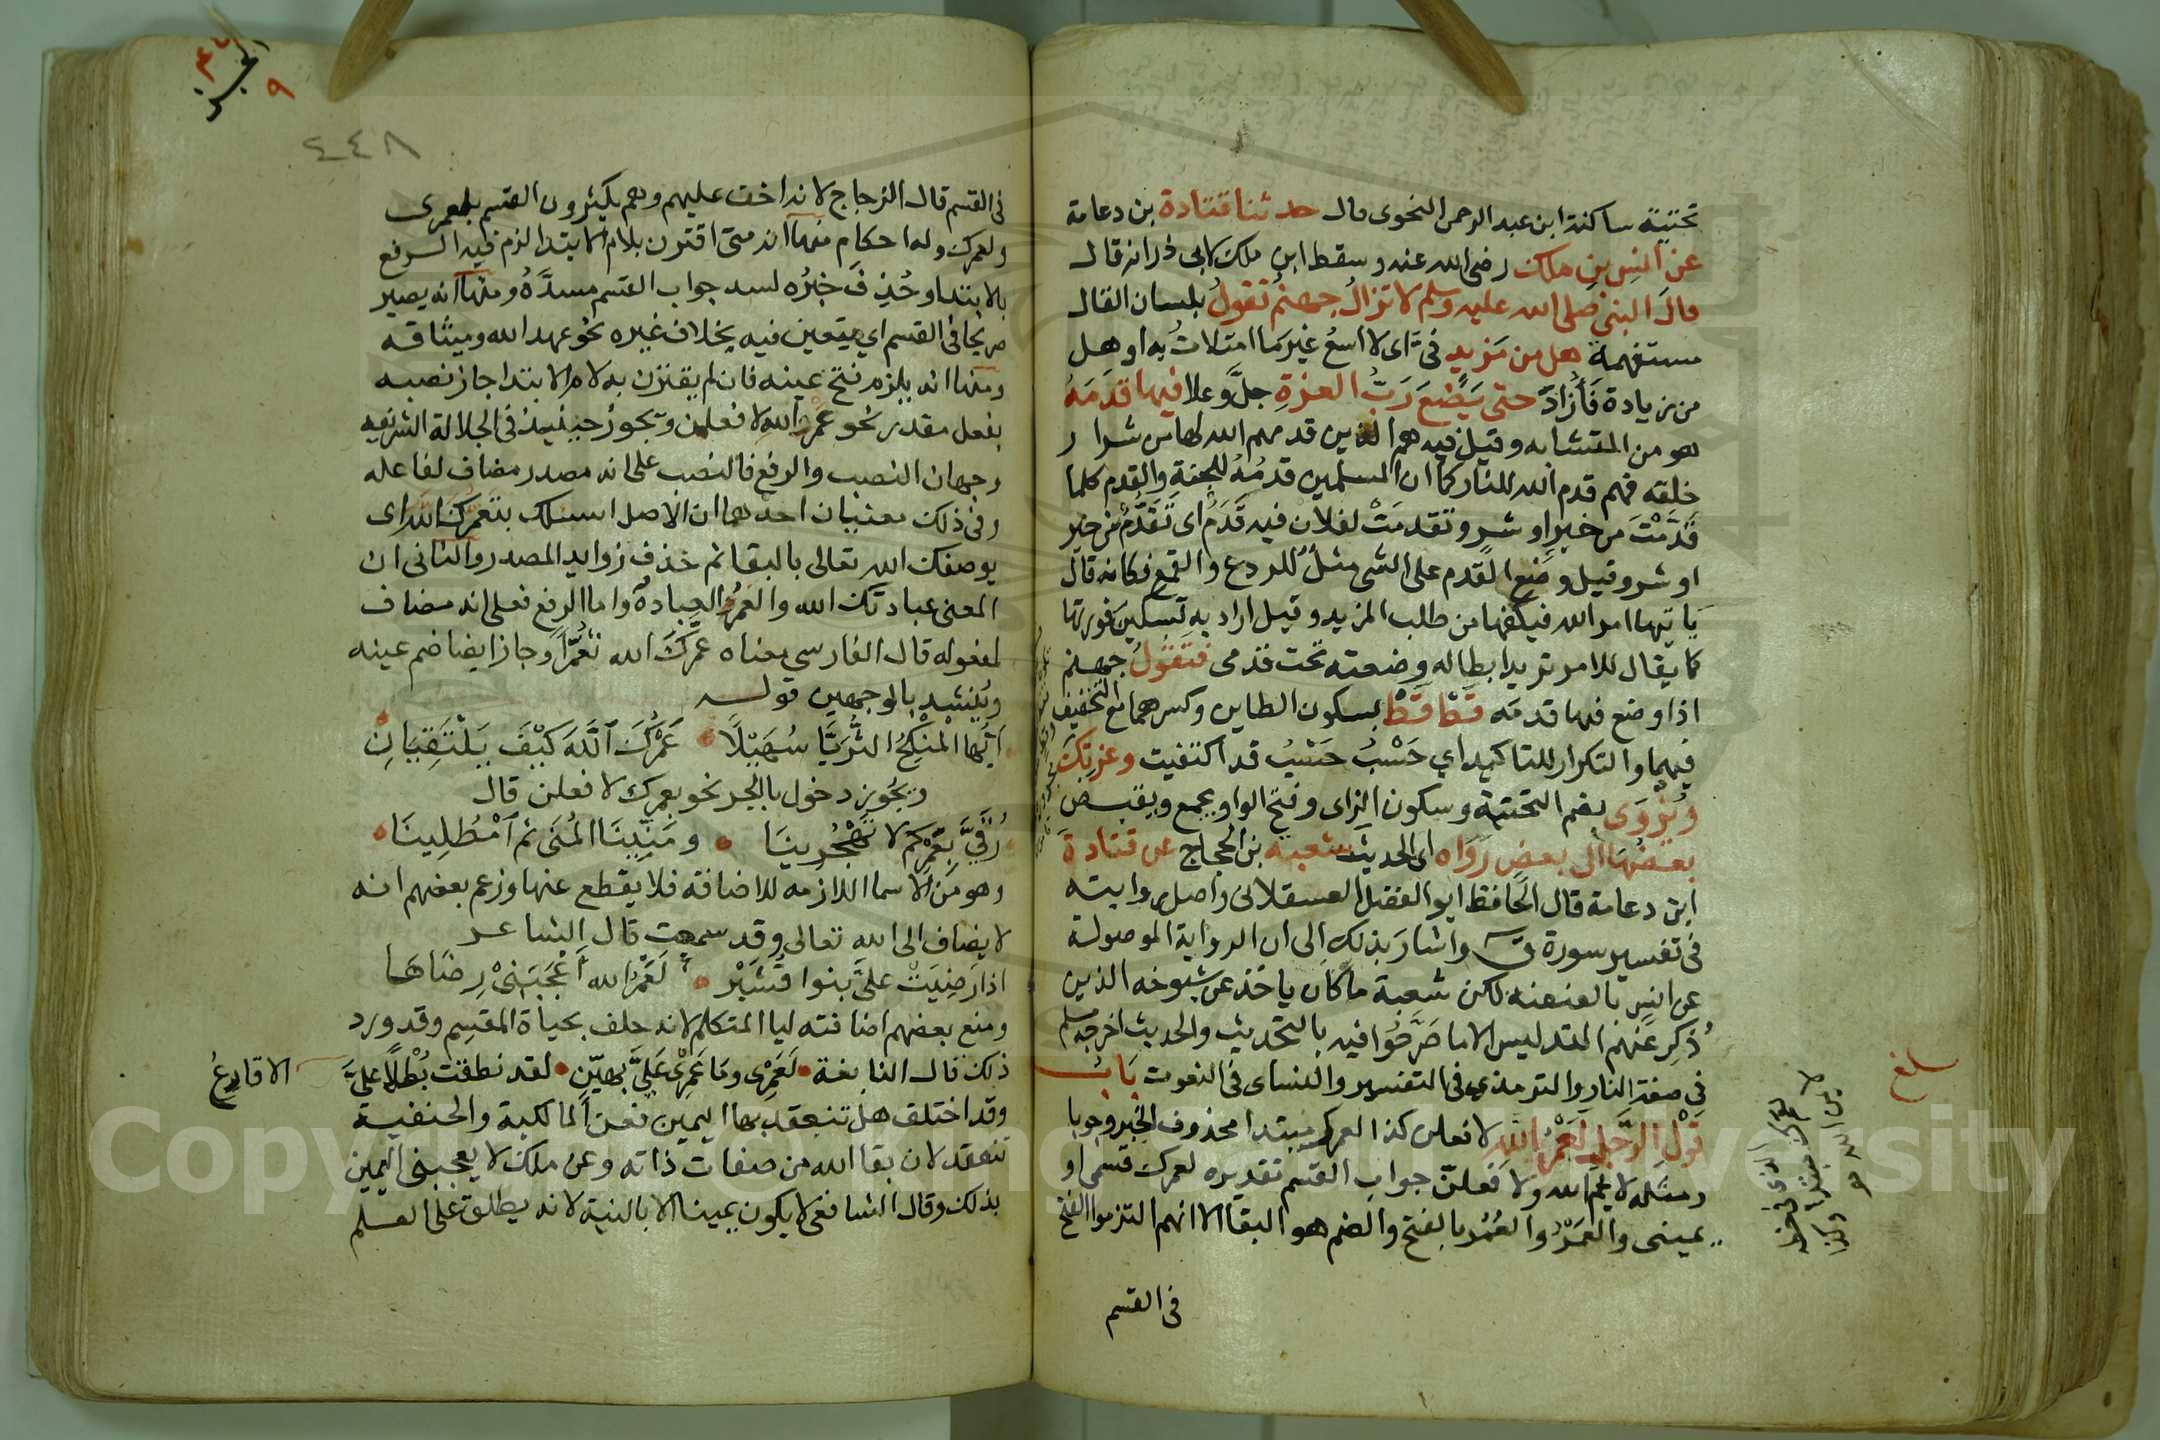 تحتية ساكنة ابن عبد الرحمن النحوى قال حدثنا قتادة بن دعامة
عن انس بن ملك رضى الله عنه وسقط ابن ملك لابى ذر انه قال
قال النبى صلى الله عليه وسلم لا تزال جهنم تقول بلسان القال
مستفهمة هل من مزيد فيّ اى لا اسع غير ما امتلات به او هل
من زيادة فأزاد حتى يضع رب العزة جل وعلا فيها قدمه
هو من المتشابه وقيل فيه هم الذين قدمهم الله لها من شرار
خلقه فهم قدم الله للنار كما ان المسلمين قدمه للجنة والقدم كلما
قدمت من خير او شر وتقدمت لفلان فيه قدم اى تقدم من خير
او شر وقيل وضع القدم على الشى مثل للردع والقمع فكانه قال
ياتيها امر الله فيكفها من طلب المزيد وقيل اراد به تسكين فورتها
كما يقال للامر تريد ابطاله وضعته تحت قدمى فتقول جهنم
اذا وضع فيها قدمه قط قط بسكون الطاين وكسرهما مع التخفيف
فيهما والتكرار للتاكيد اي حسب حسب قد اكتفيت وعزتك
ويزوى بضم التحتية وسكون الزاى وفتح الواو يجمع ويقبض
بعضها الى بعض رواه اى الحديث شعبة بن الحجاج عن قتادة
ابن دعامة قال الحافظ ابو الفضل العسقلانى واصل روايته
فى تفسير سورة ق واشار بذلك الى ان الرواية الموصولة
عن انس بالعنعنه لكن شعبة ما كان ياخذ عن شيوخه الذين
ذكر عنهم التدليس الا ما صرحوا فيه بالتحديث والحديث اخرجه مسلم
فى صفة النار والترمذى فى التفسير والنساى فى النعوت باب
قول الرجل لعمر الله لا فعلن كذا العمرك مبتدا محذوف الخبر وجوبا
ومثله لايم الله ولا فعلن جواب القسم تقديره لعمرك قسمى او
يمينى والعَمْر والعُمْر بالفتح والضم هو البقا الا انهم التزموا الفتح
فى القسم
سلغ
٤٤٨
٩
فى القسم قال الزجاج لانه اخف عليهم وهم يكثرون القسم بلعمرى
ولعمرك وله احكام منها انه متى اقترن بلام الابتدا لزم فيه الرفع
بالابتدا وحذف خبره لسد جواب القسم مسده ومنها انه يصير
صريحا فى القسم اي يتعين فيه بخلاف غيره نحو عهد الله وميثاقه
ومنها انه يلزم فتح عينه فان لم يقترن به لام الابتدا جاز نصبه
بفعل مقدر نحو عمر الله لا فعلن ويجوز حينيذ فى الجلالة الشريفه
وجهان النصب والرفع فالنصب على انه مصدر مضاف لفاعله
وفى ذلك معنيان احدهما ان الاصل اسئلك بتعمرك الله اى
بوصفك الله تعالى بالبقا ثم حذف زوايد المصدر والثانى ان
المعنى عبادتك الله والعمر العبادة واما الرفع فعلى انه مضاف
لمفعوله قال الفارسي معناه عمرك الله تعمرا وجاز ايضا ضم عينه
وينشد بالوجهين قوله
ايها المنكح الثريا سهيلا عمرك الله كيف يلتقيان
ويجوز دخول باالجر نحو بعمرك لا فعلن قال
رقيّ بعمركم لا تهجرينا ومنينا المنى ثم امطلينا
وهو من الاسما اللازمه للاضافة فلا يقطع عنها وزعم بعضهم انه
لا يضاف الى الله تعالى وقد سمعت قال الشاعر
اذا رضيت على بنوا قشير لعمر الله اعجبنى رضاها
ومنع بعضهم اضافته ليا المتكلم لانه حلف بحياة المقسم وقد ورد
ذلك قال النابغة لعمرى وما عمرى على بهين لقد نطقت بطلا علىّ
الاقارع
وقد اختلف هل تنعقد بها اليمين فعن المالكية والحنفية
تنعقد لان بقا الله من صفات ذاته وعن ملك لا يعجبنى اليمين
بذلك وقال الشافعى لا يكون يمينا الا بالنية لانه يطلق على العلم